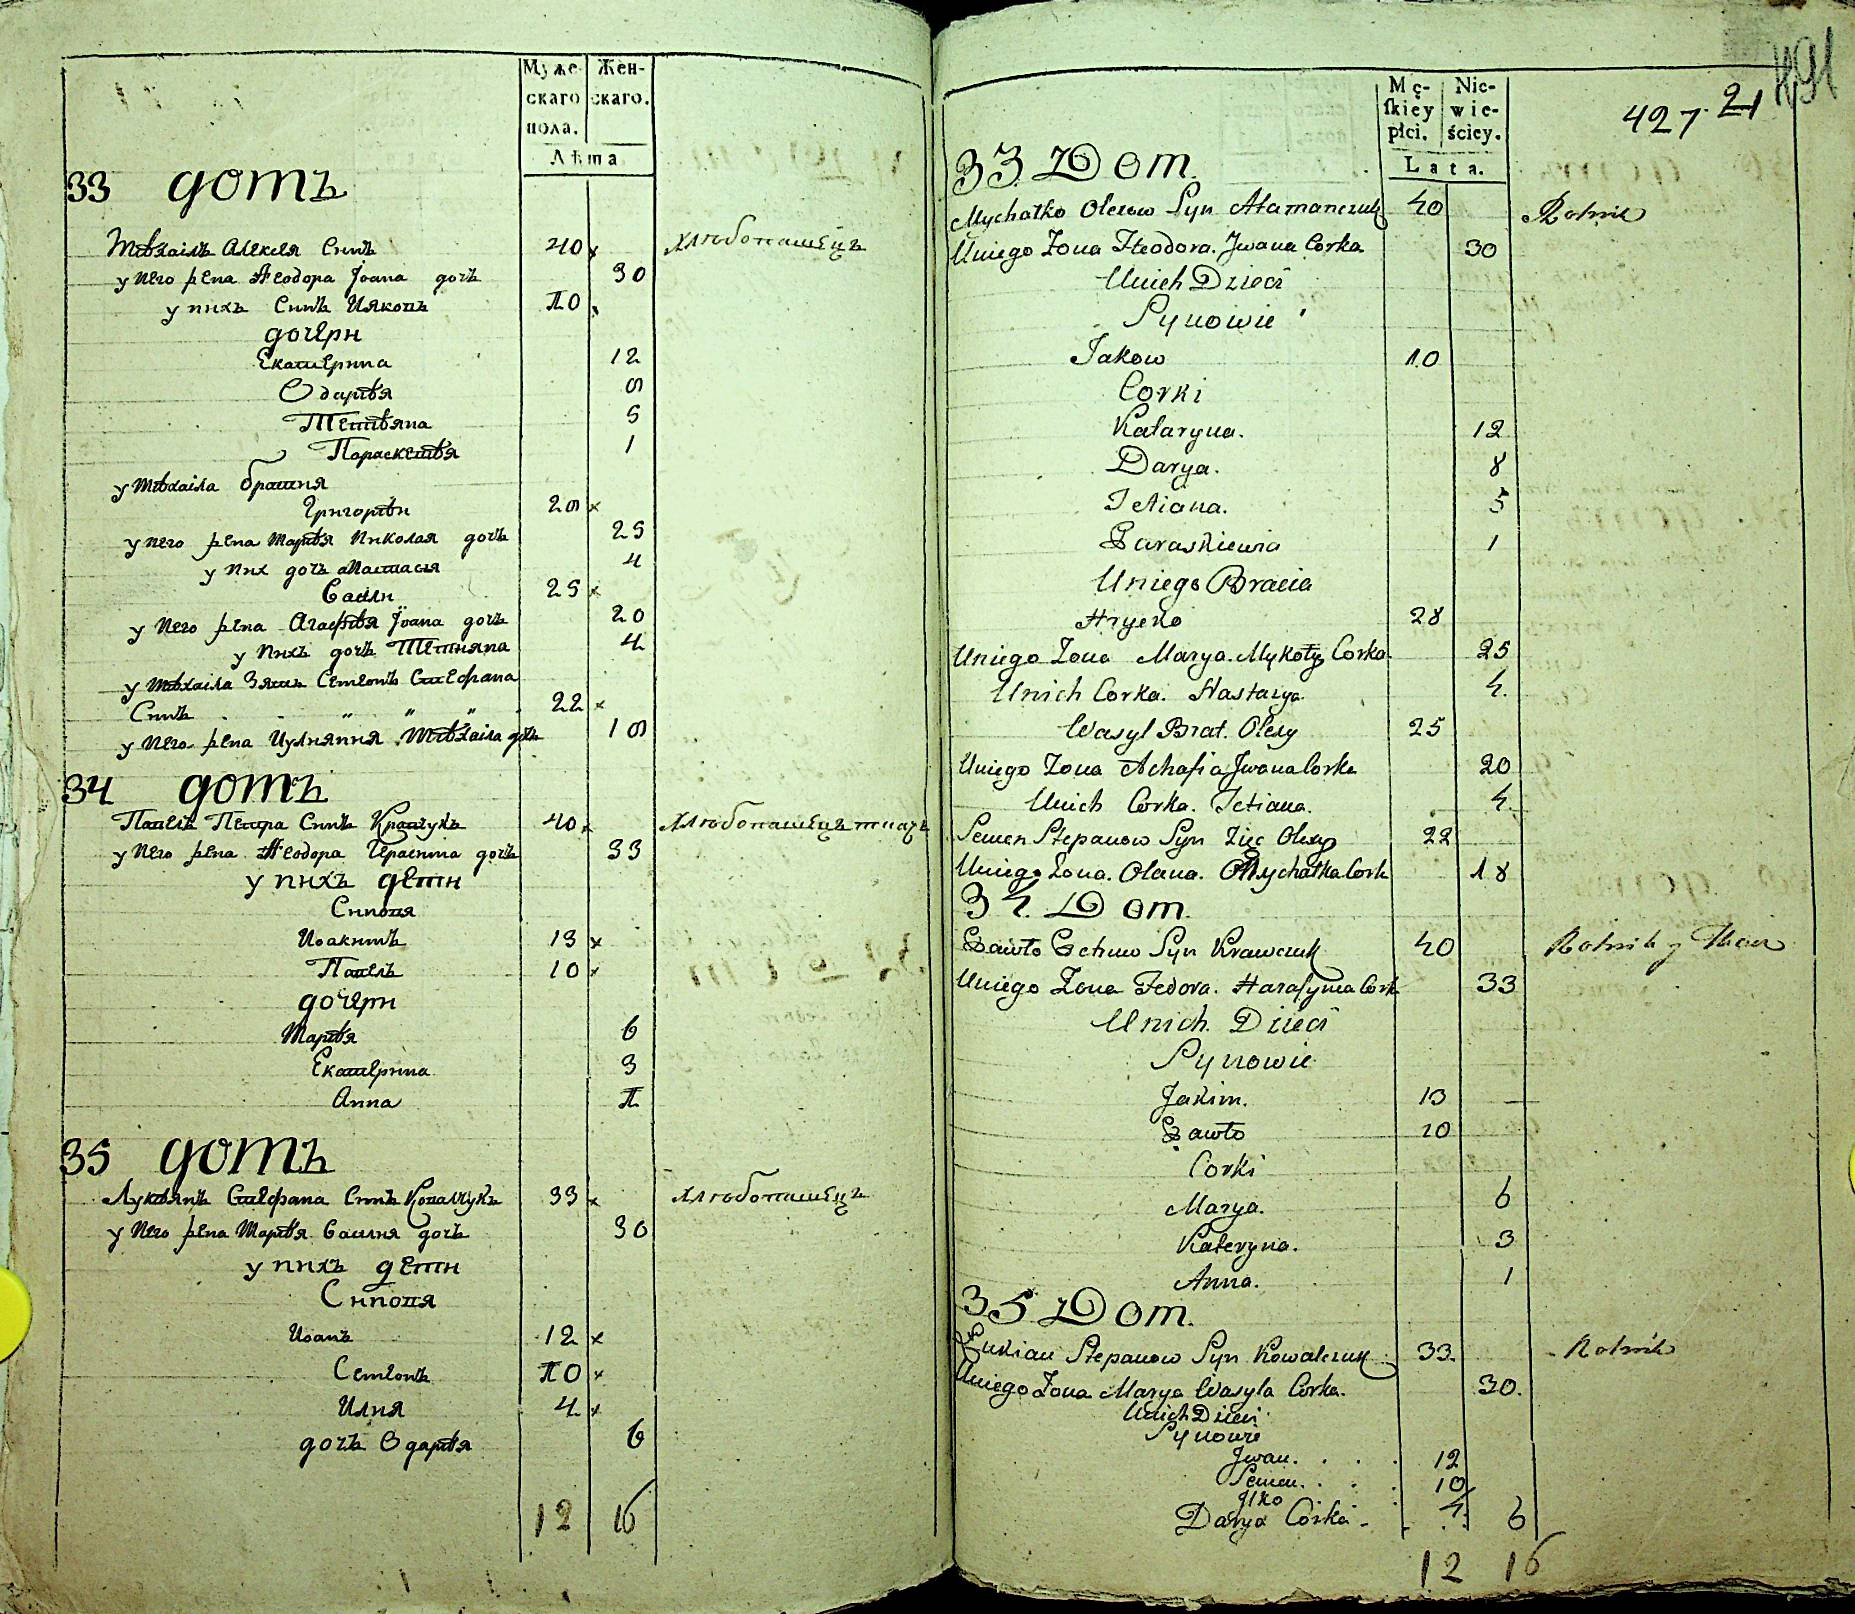 Муже-
скаго
пола.
Жен-
скаго.
Лѣта
33 домъ
Михаилъ Алексея Синъ 40 x Хлѣбопашецъ
у него жена Ѳеодора Іоана дочъ 30
у нихъ Синъ Иякопъ 10
дочери
Екатерина 12
Одария 8
Тетияна 5
Параскевия 1
у Михаила братия
Григорий 28 x
у него жена Мария Николая дочъ 25
у них дочъ Анастасия 4
Васили 25 x
у него жена Агафия Іоана дочъ 20
у нихъ дочъ Тетияна 4
у Михаила Зять Семионъ Стефана
Синъ 22 x
у него жена Иулияния Михаила дочъ 18
34 домъ
Павелъ Петра Синъ Кравчукъ 40 x Хлѣбопашецъ ткачъ
у него жена Ѳеодора Герасима дочъ 33
у нихъ дети
Синовя
Иоакимъ 13 x
Павелъ 10 x
дочери
Мария 6
Екатерина 3
Анна 1
35 домъ
Лукиянъ Стефана Синъ Ковалчукъ 33 x Хлѣбопашецъ
у него жена Мария Василия дочъ 30
у нихъ дети
Синовя
Иоанъ 12 x
Семионъ 10 x
Илия 4 x
дочъ Одария 6
12 16
491
427 21
Mę-
skiey
płci.
Nie-
wie-
ściey.
Lata.
33 Dom.
Mychałko Olexow Syn Atamanczuk 40 Rolnik
Uniego Zona Fteodora. Jwana Corka 30
Unich Dzieci
Synowie
Jakow 10
Corki
Kataryna. 12
Darya. 8
Tetiana. 5
Paraskiewia 1
Uniego Bracia
Hryćko 28
Uniego Zona Marya. Mykoły Corka 25
Unich Corka. Nastazya. 4.
Wasyl Brat. Olexy 25
Uniego Zona Achafia Jwana Corka 20
Unich Corka. Tetiana. 4.
Semen Stepanow Syn Zięc Olexy 22
Uniego Zona. Olana. Mychałka Cork 18
34. Dom.
Pawło Petrow Syn Krawczuk 40 Rolnik y Tkacz
Uniego Zona Fedora. Harasyma Cork 33
Unich. Dzieci
Synowie
Jakim. 13
Pawło 10
Corki
Marya. 6
Kateryna. 3
Anna. 1
35 Dom.
Łukian Stepanow Syn Kowalczuk 33. Rolnik
Uniego Zona Marya Wasyla Corka. 30.
Unich Dzieci
Synowie
Jwan. 12
Semen. 10
Jlko 4.
Darya Corka 6
12 16